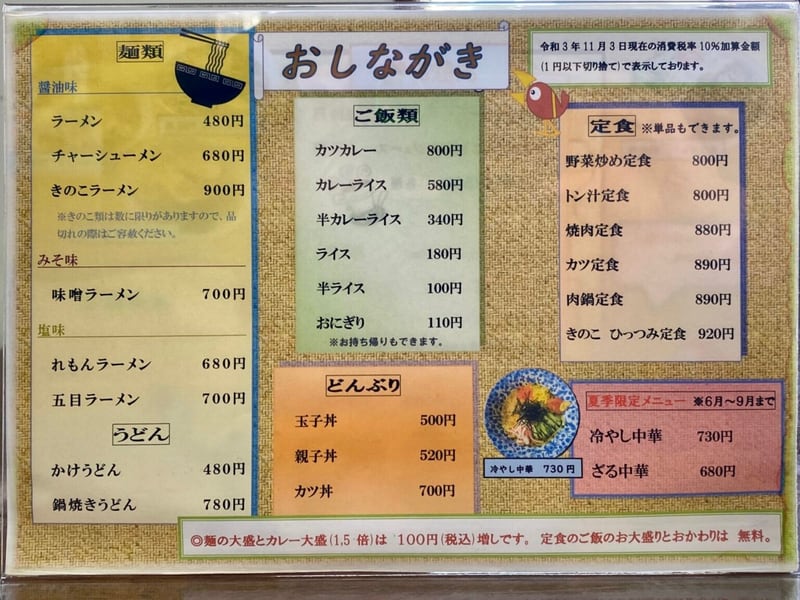 おしながき
令和3年11月3日現在の消費税率10%加算金額
(1円以下切り捨て)で表示しております。
麺類
醤油味
ラーメン 480円
チャーシューメン 680円
きのこラーメン 900円
※きのこ類は数に限りがありますので、品
切れの際はご容赦ください。
みそ味
味噌ラーメン 700円
塩味
れもんラーメン 680円
五目ラーメン 700円
うどん
かけうどん 480円
鍋焼きうどん 780円
ご飯類
カツカレー 800円
カレーライス 580円
半カレーライス 340円
ライス 180円
半ライス 100円
おにぎり 110円
※お持ち帰りもできます。
どんぶり
玉子丼 500円
親子丼 520円
カツ丼 700円
定食 ※単品もできます。
野菜炒め定食 800円
トン汁定食 800円
焼肉定食 880円
カツ定食 890円
肉鍋定食 890円
きのこ ひっつみ定食 920円
冷やし中華 730円
夏季限定メニュー ※6月～9月まで
冷やし中華 730円
ざる中華 680円
◎麺の大盛とカレー大盛(1,5倍)は 100円(税込)増しです。 定食のご飯のお大盛りとおかわりは 無料。